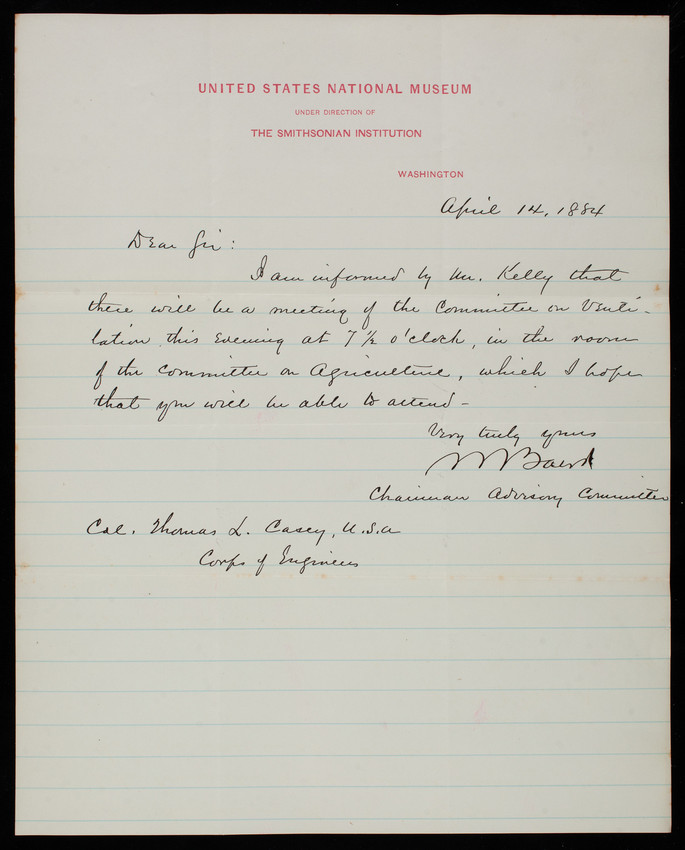 UNITED STATES NATIONAL MUSEUM
UNDER DIRECTION OF
THE SMITHSONIAN INSTITUTION
WASHINGTON
April 14, 1884
Dear Sir:
I am informed by Mr. Kelly that
there will be a meeting of the Committee on Venti-
lation this evening at 7 1/2 o'clock, in the room
of the Committee on Agriculture, which I hope
that you will be able to attend -
Very truly yours
Baird
Chairman Advisory Committee
Col. Thomas L. Casey, U.S.A
Corps of Engineers